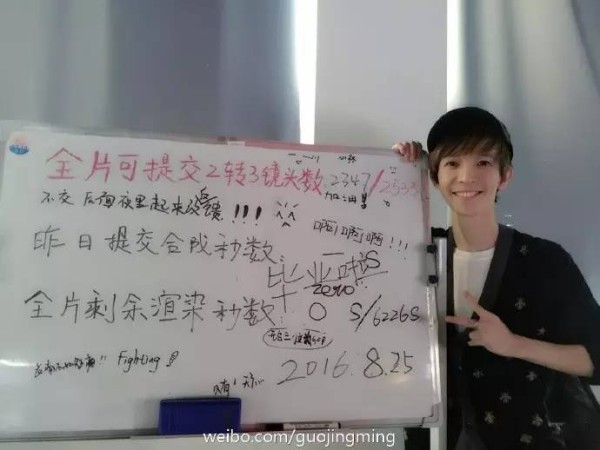 全片可提交2转3镜头数 2347/2533
加油!!
不交 后面夜里起来没
!!! 啊啊啊啊!!!
昨日提交合成秒数:
毕业啦
S
zero
全片剩余渲染秒数: 0 S/6226S
Fighting
2016.8.25
weibo.com/guojingming